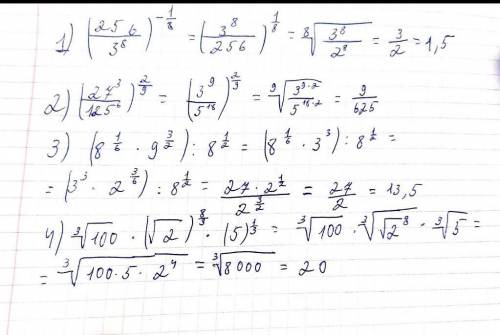 1) (256/3⁸)^(-1/8) = (3⁸/256)^(1/8) = ⁸√(3⁸/2⁸) = 3/2 = 1,5
2) (27³/125⁶)^(2/9) = (3⁹/5¹⁸)^(2/9) = ⁹√(3^(9·2)/5^(18·2)) = 9/625
3) (8^(1/6) · 9^(3/2)) : 8^(1/2) = (8^(1/6) · 3³) : 8^(1/2) =
= (3³ · 2^(3/6)) : 8^(1/2) = (27 · 2^(1/2))/(2^(3/2)) = 27/2 = 13,5
4) ³√100 · (√2)^(8/3) · (5)^(1/3) = ³√100 · ³√(√2⁸) · ³√5 =
= ³√(100 · 5 · 2⁴) = ³√8000 = 20